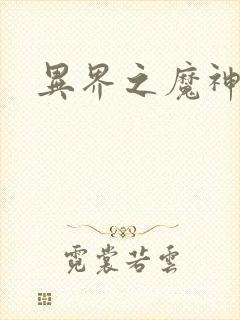 異界之魔神
霓裳若雲